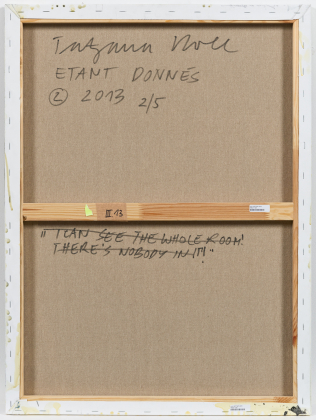 Tatjana Doll
ETANT DONNÉS
② 2013 2/5
III 13
"I CAN SEE THE WHOLE ROOM!
THERE'S NOBODY IN IT!"